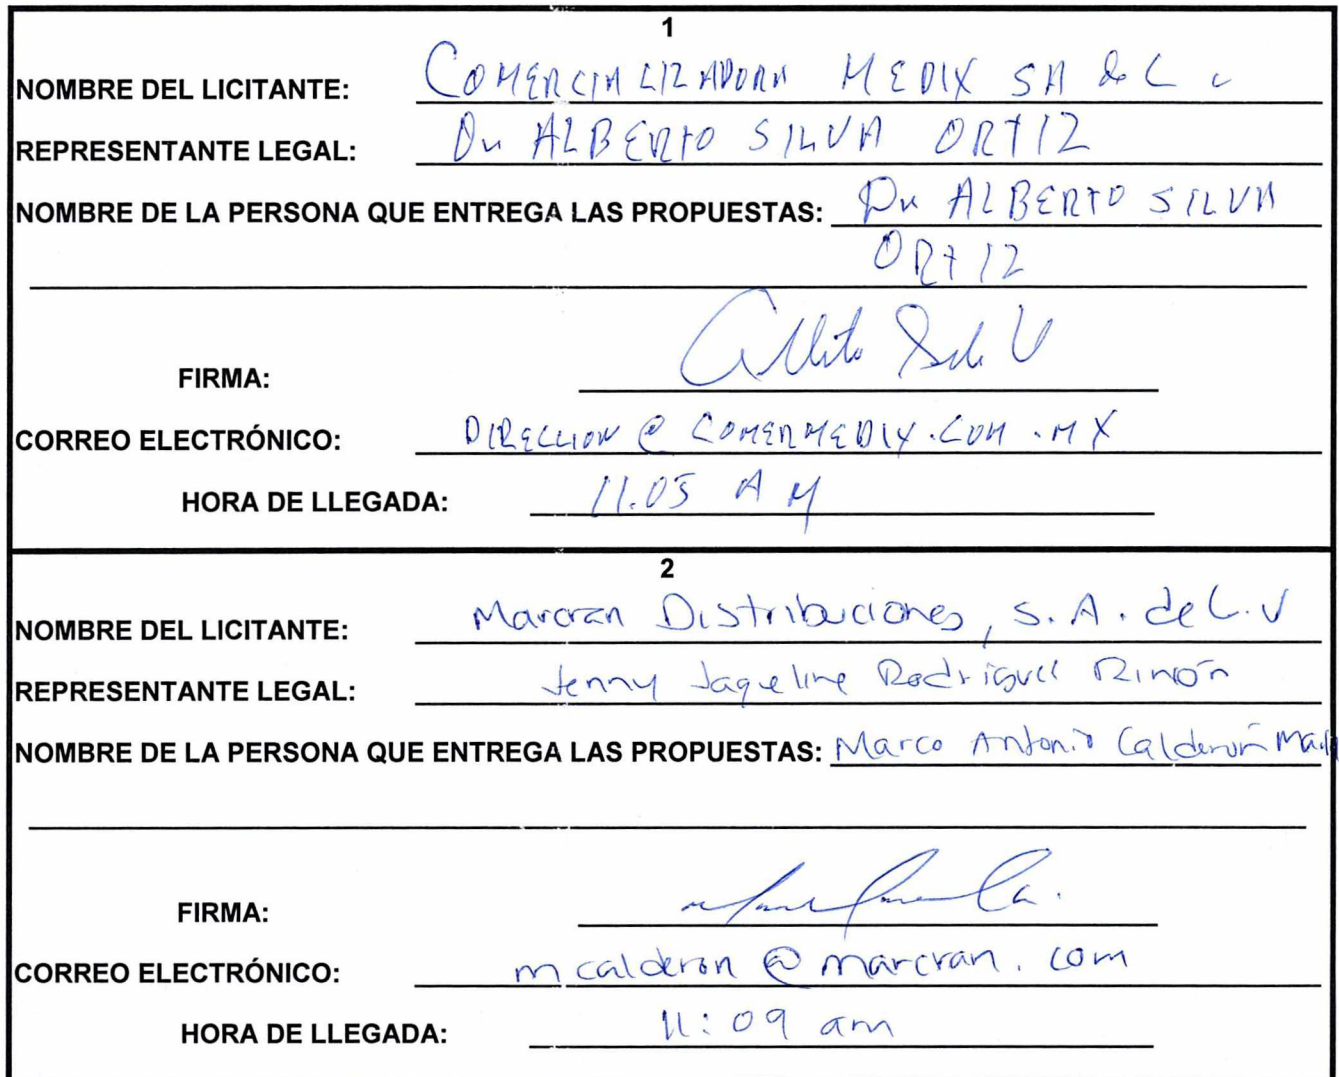 1
NOMBRE DEL LICITANTE: COMERCIALIZADORA MEDIX SA de C v
REPRESENTANTE LEGAL: Dr ALBERTO SILVA ORTIZ
NOMBRE DE LA PERSONA QUE ENTREGA LAS PROPUESTAS: Dr ALBERTO SILVA
ORTIZ
FIRMA:
CORREO ELECTRÓNICO: DIRECCION @ COMERMEDIX.COM.MX
HORA DE LLEGADA: 11.05 AM
2
NOMBRE DEL LICITANTE: Marcran Distribuciones, S.A. de C.V
REPRESENTANTE LEGAL: Jenny Jaqueline Rodríguez Rincón
NOMBRE DE LA PERSONA QUE ENTREGA LAS PROPUESTAS: Marco Antonio Calderón
FIRMA:
CORREO ELECTRÓNICO: mcalderon @ marcran.com
HORA DE LLEGADA: 11:09 am